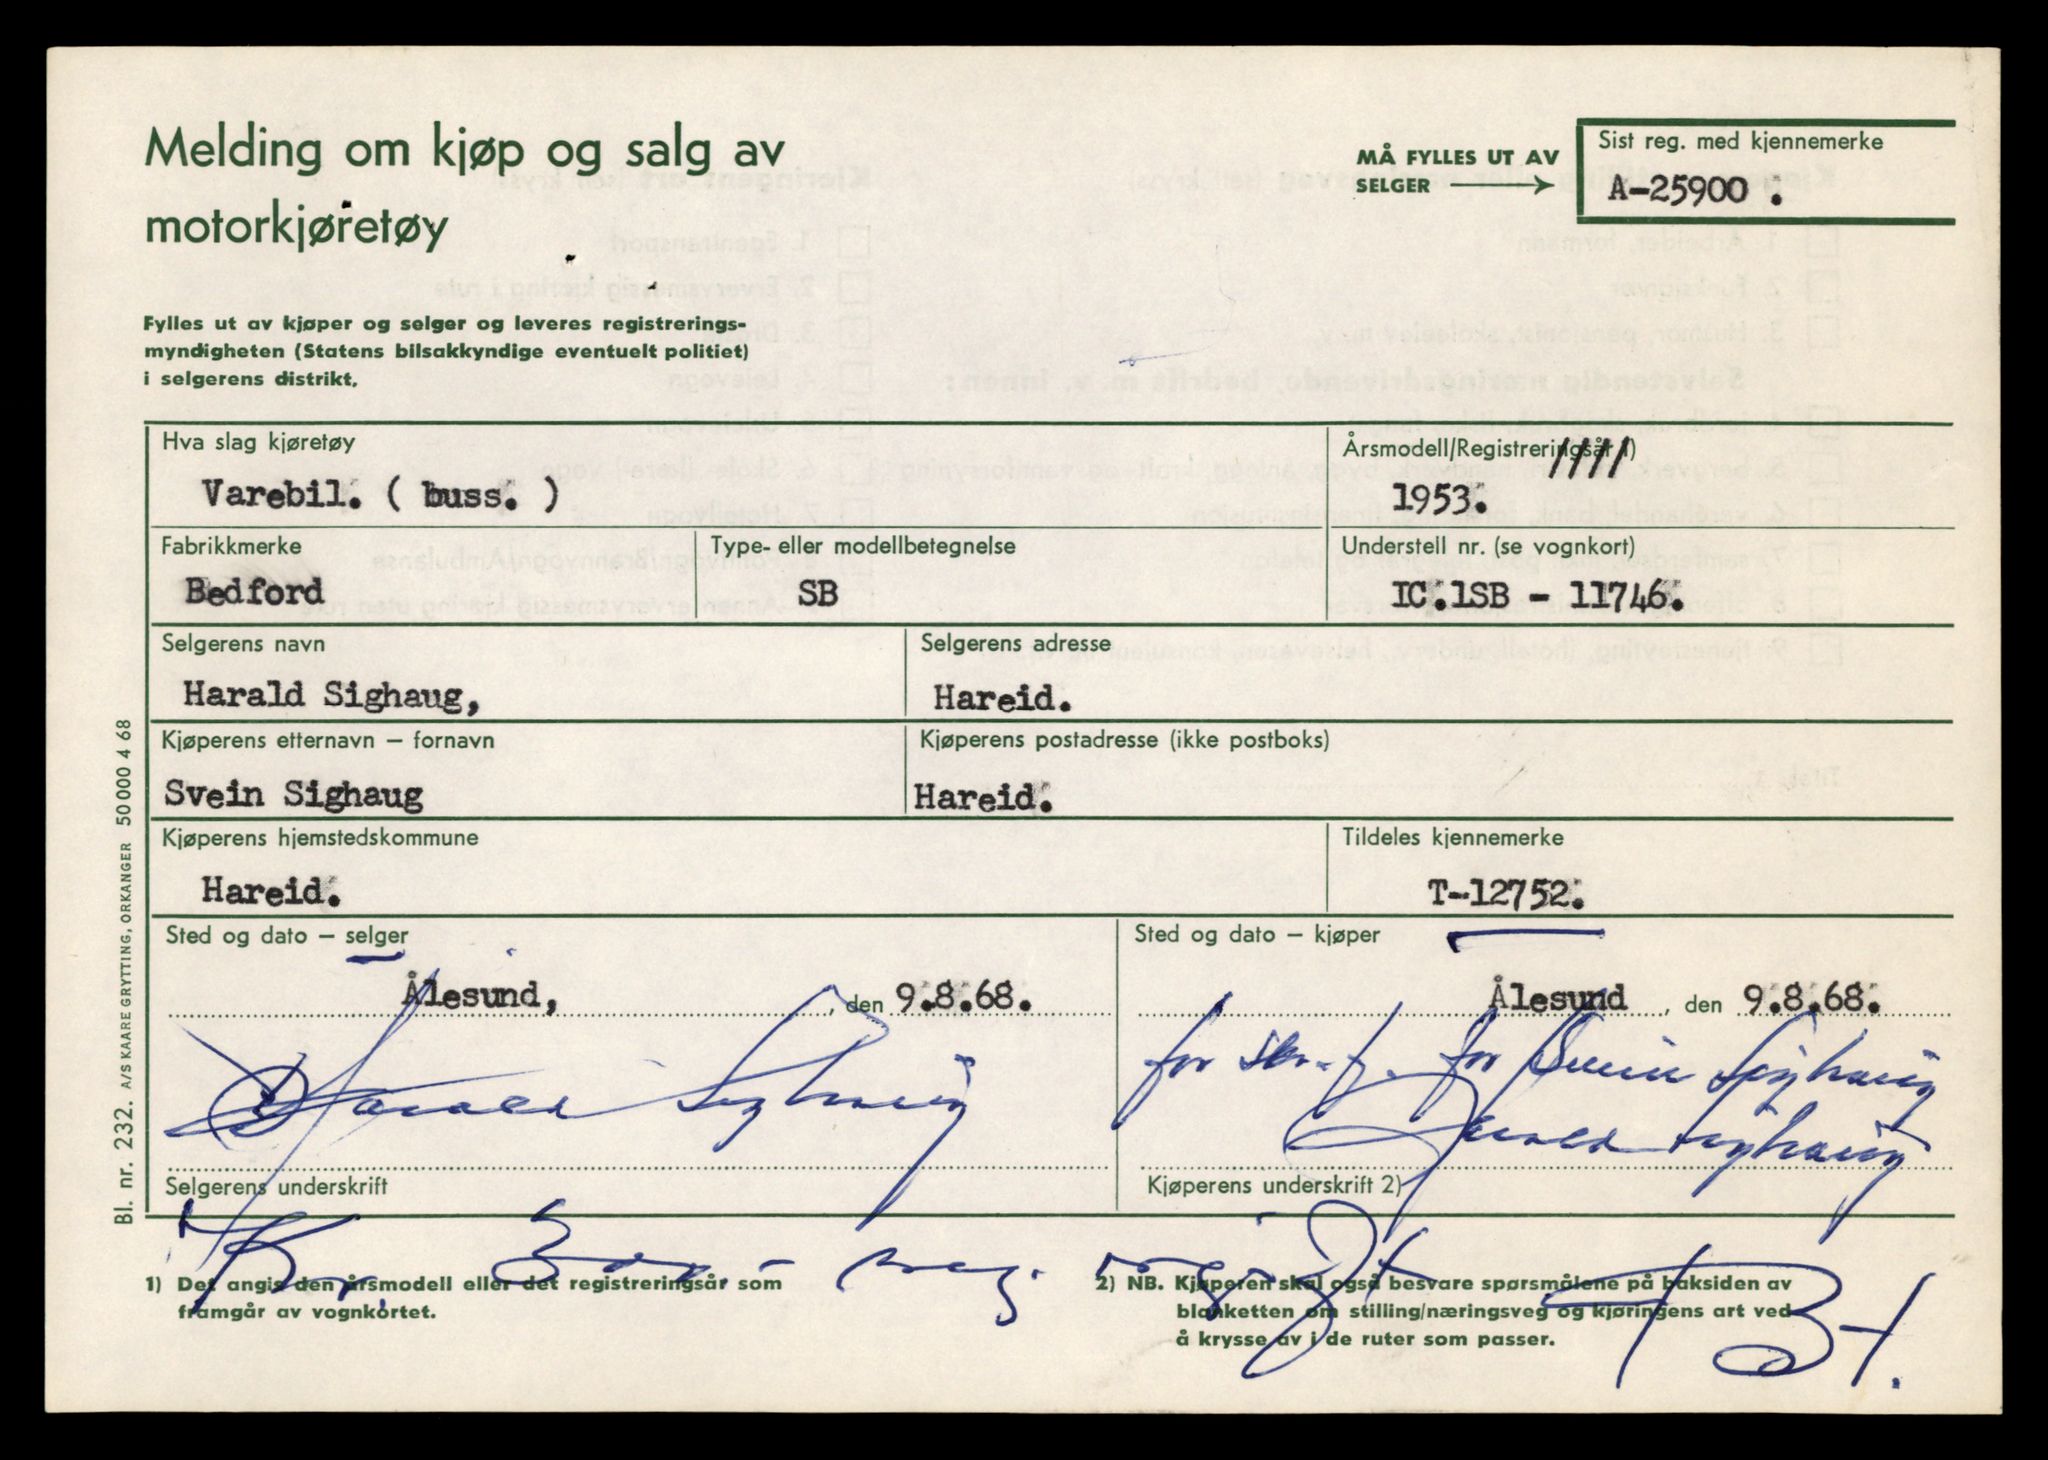 Melding om kjøp og salg av
motorkjøretøy
MÅ FYLLES UT AV
SELGER
Sist reg. med kjennemerke
A-25900 .
Fylles ut av kjøper og selger og leveres registrerings-
myndigheten (Statens bilsakkyndige eventuelt politiet)
i selgerens distrikt.
Hva slag kjøretøy
Varebil. ( buss. )
Årsmodell/Registreringsår 1)
1953.
Fabrikkmerke
Bedford
Type- eller modellbetegnelse
SB
Understell nr. (se vognkort)
IC.1SB - 11746.
Selgerens navn
Harald Sighaug,
Selgerens adresse
Hareid.
Kjøperens etternavn – fornavn
Svein Sighaug
Kjøperens postadresse (ikke postboks)
Hareid.
Kjøperens hjemstedskommune
Hareid.
Tildeles kjennemerke
T-12752.
Sted og dato – selger
Ålesund, , den 9.8.68.
Harald Sighaug
Selgerens underskrift
Sted og dato – kjøper
Ålesund , den 9.8.68.
for Svein Sighaug
Harald Sighaug
Kjøperens underskrift 2)
Kr.
1) Det angis den årsmodell eller det registreringsår som
framgår av vognkortet.
2) NB. Kjøperen skal også besvare spørsmålene på baksiden av
blanketten om stilling/næringsveg og kjøringens art ved
å krysse av i de ruter som passer.
Bl. nr. 232. A/S KAARE GRYTTING, ORKANGER 50 000 4 68